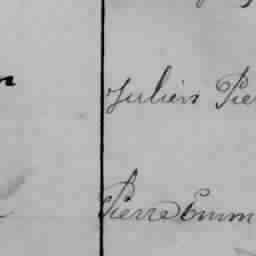 Julien Pie
Pierre Emm